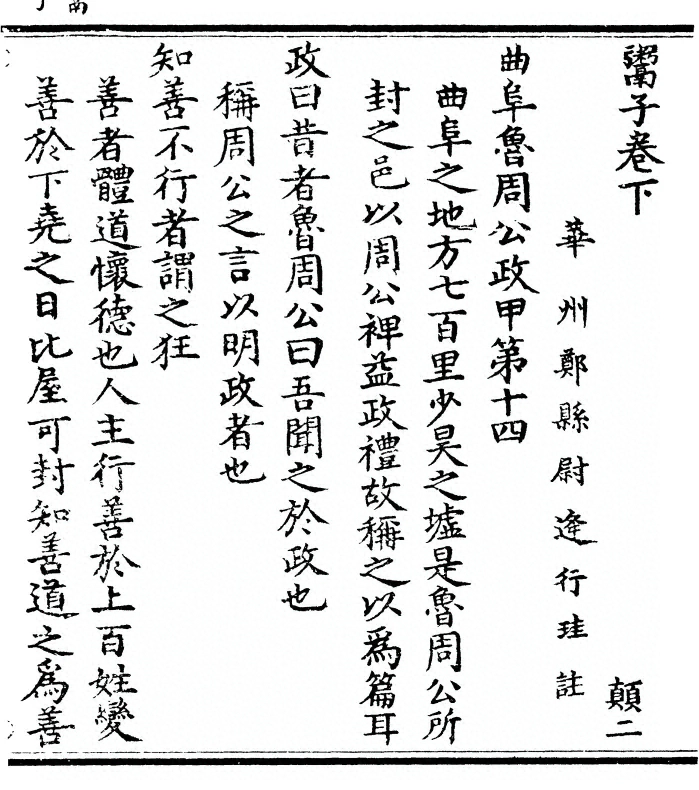 鬻子卷下 顛二
華州鄭縣尉逄行珪註
曲阜魯周公政甲第十四
曲阜之地方七百里少昊之墟是魯周公所
封之邑以周公裨益政禮故稱之以爲篇耳
政曰昔者魯周公曰吾聞之於政也
稱周公之言以明政者也
知善不行者謂之狂
善者體道懷德也人主行善於上百姓變
善於下堯之日比屋可封知善道之爲善